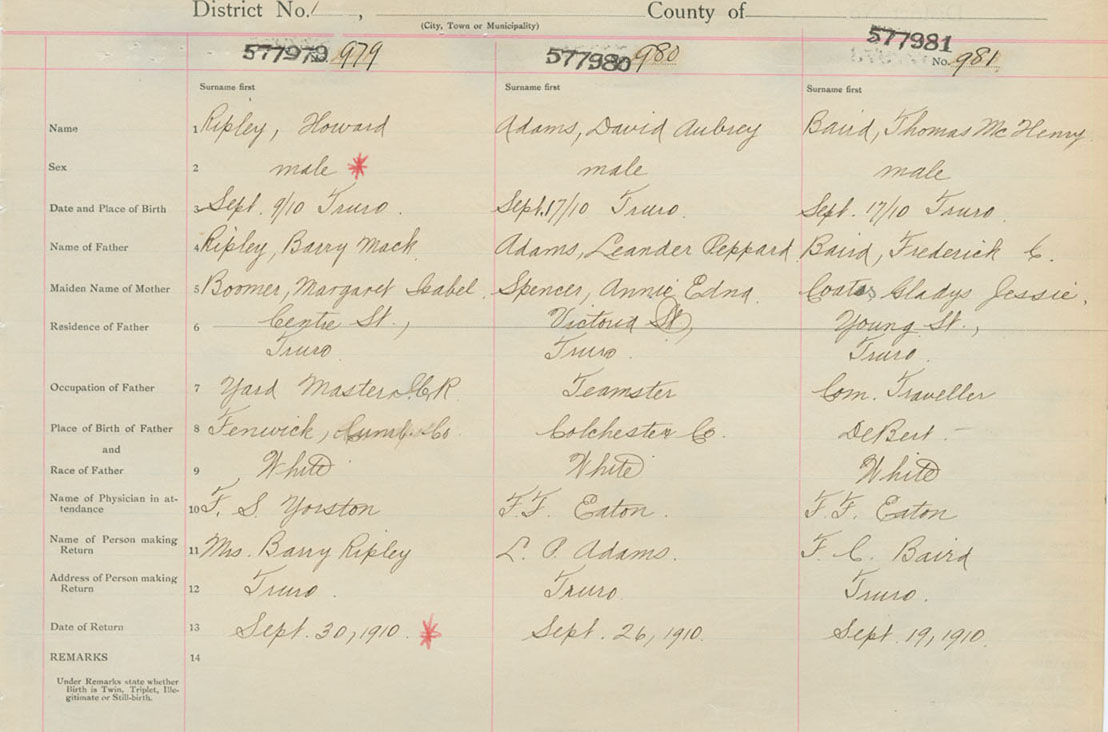 District No. 1, County of
(City, Town or Municipality)
577979 979 577980 980 577981 No. 981
Surname first Surname first Surname first
Name 1 Ripley, Howard Adams, David Aubrey Baird, Thomas McHenry
Sex 2 male * male male
Date and Place of Birth 3 Sept. 9/10 Truro. Sept. 17/10 Truro. Sept. 17/10 Truro.
Name of Father 4 Ripley, Barry Mack. Adams, Leander Peppard Baird, Frederick C.
Maiden Name of Mother 5 Boomer, Margaret Isabel. Spencer, Annie Edna. Coates Gladys Jessie.
Residence of Father 6 Centre St., Victoria St., Young St.,
Truro. Truro. Truro.
Occupation of Father 7 Yard Master I.C.R. Teamster Com. Traveller
Place of Birth of Father 8 Fenwick, Cumb. Co. Colchester Co. DeBert.
and
Race of Father 9 White White White
Name of Physician in at-
tendance 10 F. S. Yorston F. F. Eaton. F. F. Eaton
Name of Person making
Return 11 Mrs. Barry Ripley L. P. Adams. F. C. Baird
Address of Person making
Return 12 Truro. Truro. Truro.
Date of Return 13 Sept. 30, 1910. * Sept. 26, 1910. Sept. 19, 1910.
REMARKS 14
Under Remarks state whether
Birth is Twin, Triplet, Ille-
gitimate or Still-birth.